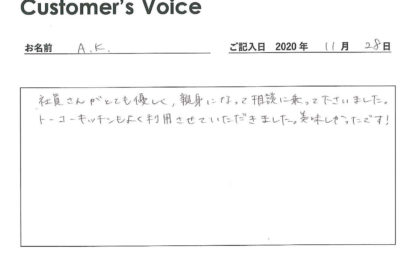 Customer's Voice
お名前 A.K. ご記入日 2020年 11月 28日
社員さんがとても優しく、親身になって相談に乗って下さいました。
トーコーキッチンもよく利用させていただきました。美味しかったです!